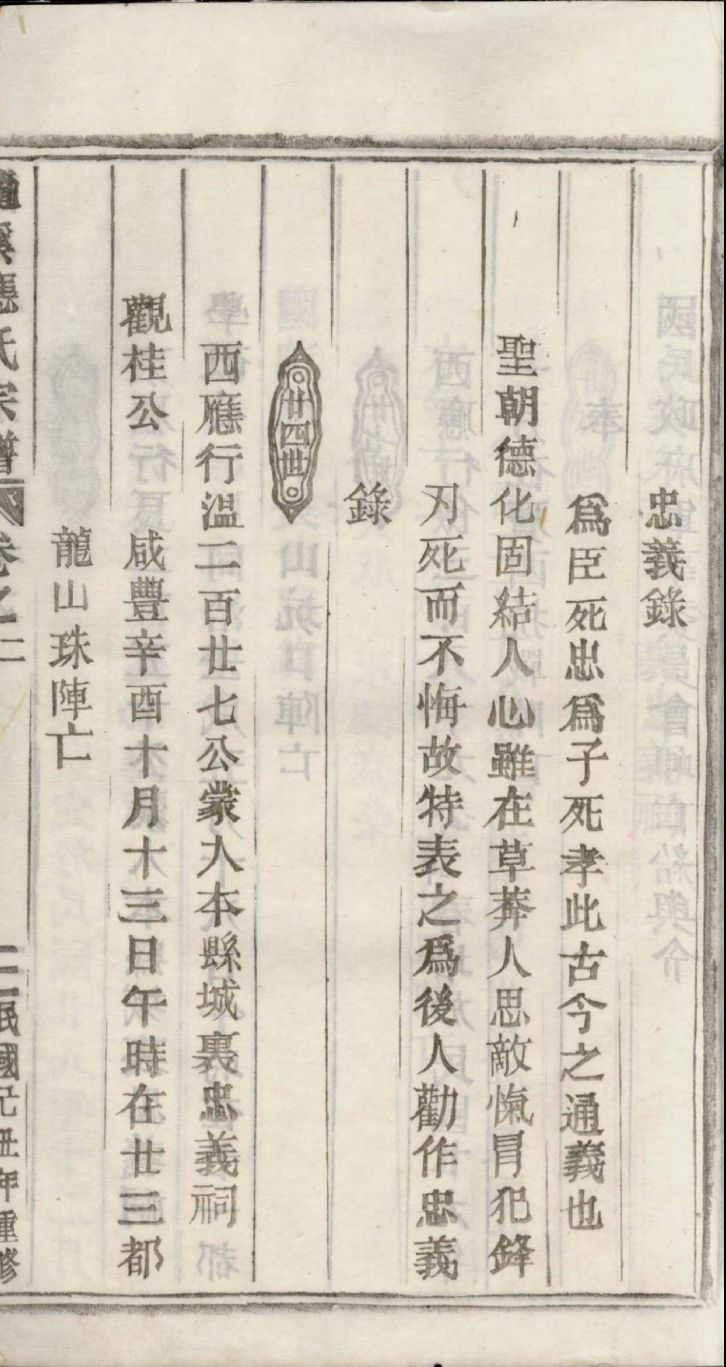 忠義錄
爲臣死忠爲子死孝此古今之通義也
聖朝德化固結人心雖在草莽人思敵愾冒犯鋒
刃死而不悔故特表之爲後人勸作忠義
錄
廿四世
西應行溫二百廿七公蒙入本縣城裏忠義祠
觀桂公　咸豐辛酉十月十三日午時在廿三都
龍山珠陣亡
溪應氏宗譜　卷之二　民國己丑年重修